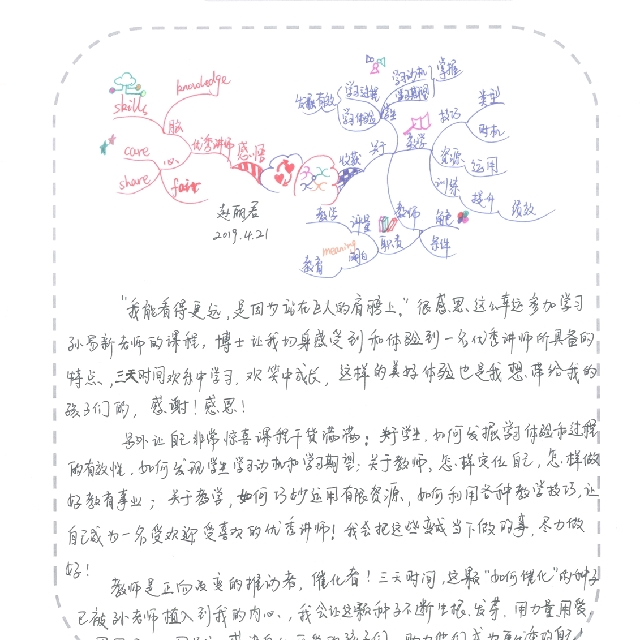 skills
knowledge
脑
care
心
share
fair
优秀讲师
感悟
收获
关于
发掘有效
学习过程
学习体验
学生
学习动机
学习期望
掌握
教学
技巧
类型
时机
资源
运用
训练
提升
绩效
教师
角色
条件
职责
评量
教学
meaning
教育
赵丽君
2019.4.21
"我能看得更远,是因为站在巨人的肩膀上。"很感恩这么幸运参加学习
孙易新老师的课程,博士让我切身感受到和体验到一名优秀讲师所具备的
特点、三天时间欢乐中学习,欢笑中成长,这样的美好体验也是我想带给我的
孩子们的,感谢!感恩!
另外让自己非常惊喜课程干货满满:关于学生,如何发掘学习体验和过程
的有效性,如何发现学生学习动机和学习期望;关于教师,怎样定位自己,怎样做
好教育事业;关于教学,如何巧妙运用有限资源,如何利用各种教学技巧,让
自己成为一名受欢迎受喜欢的优秀讲师!我会把这些变成当下做的事,尽力做
好!
教师是正向改变的推动者,催化者!三天时间,这颗"如何催化"的种子
已被孙老师植入到我的内心,我会让这颗种子不断生根、发芽,用力量用爱,